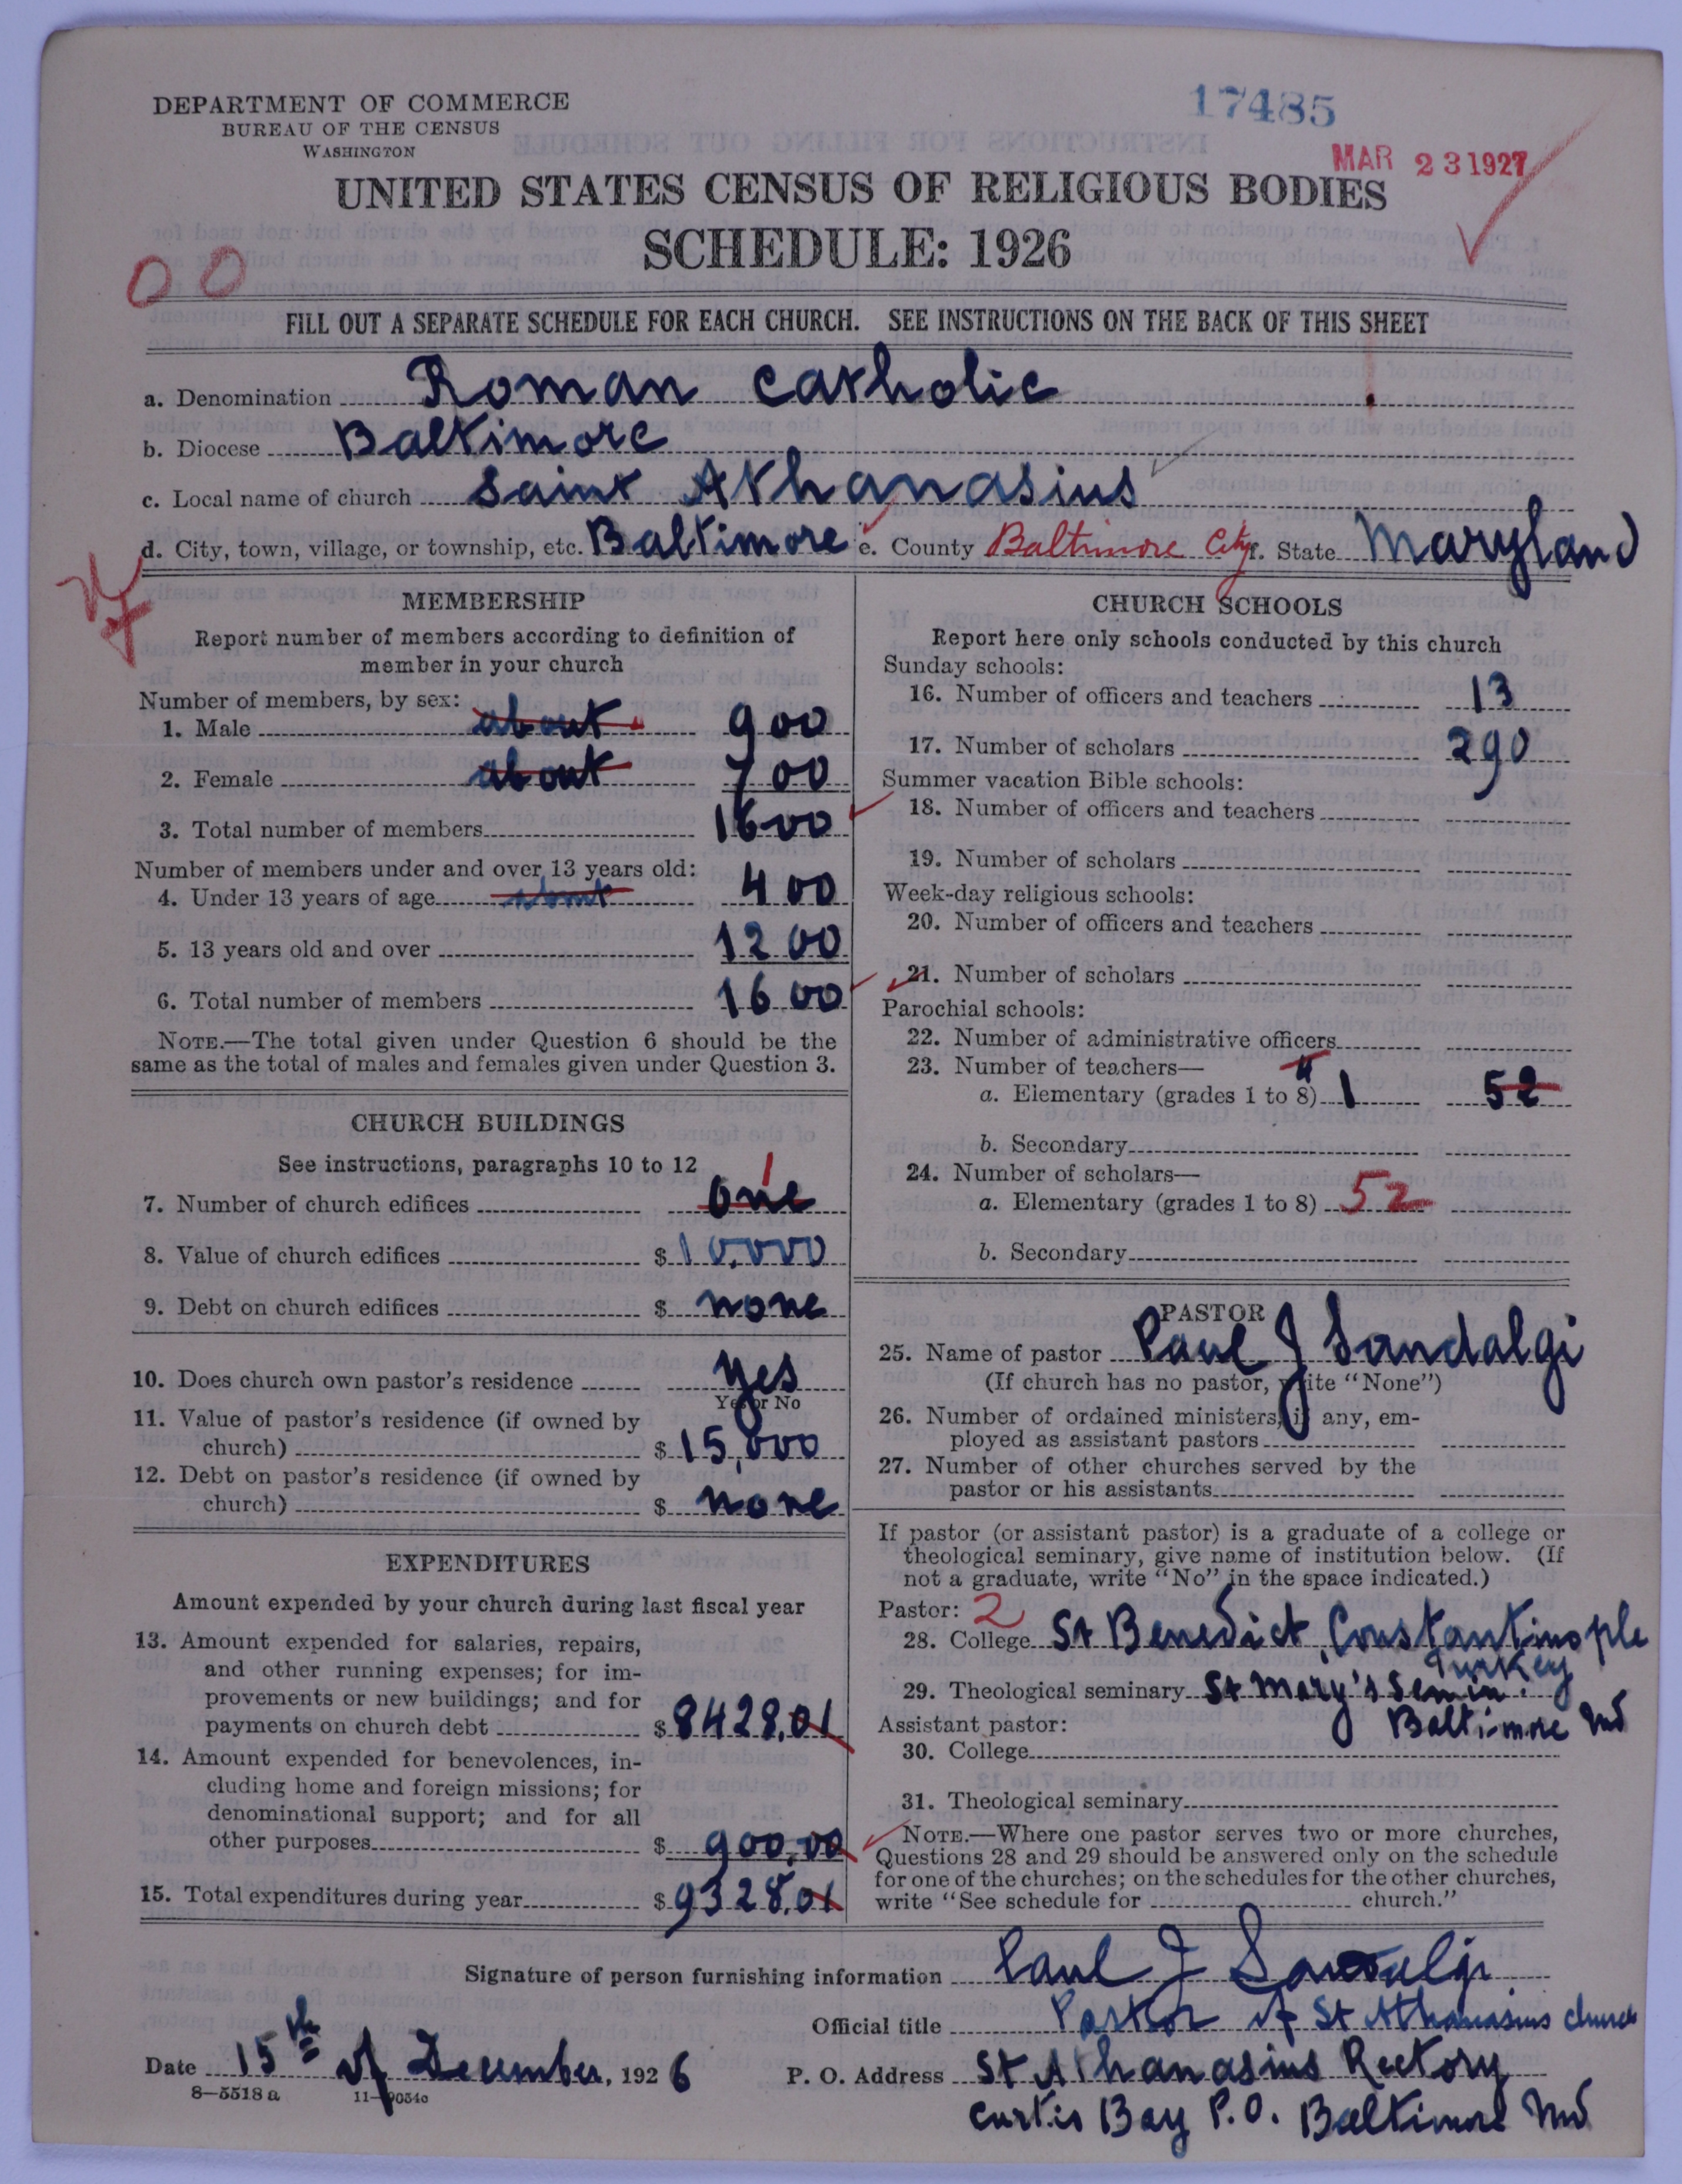 DEPARTMENT OF COMMERCE
BUREAU OF THE CENSUS
WASHINGTON
17485
MAR 23 1927
UNITED STATES CENSUS OF RELIGIOUS BODIES
SCHEDULE: 1926
00
FILL OUT A SEPARATE SCHEDULE FOR EACH CHURCH. SEE INSTRUCTIONS ON THE BACK OF THIS SHEET
a. Denomination Roman Catholic
b. Diocese Baltimore
c. Local name of church Saint Athanasius
d. City, town, village, or township, etc. Baltimore e. County Baltimore City f. State Maryland
MEMBERSHIP
Report number of members according to definition of
member in your church
Number of members, by sex:
1. Male about 900
2. Female about 700
3. Total number of members 1600
Number of members under and over 13 years old:
4. Under 13 years of age about 400
5. 13 years old and over 1200
6. Total number of members 1600
NOTE.—The total given under Question 6 should be the
same as the total of males and females given under Question 3.
CHURCH BUILDINGS
See instructions, paragraphs 10 to 12
1
7. Number of church edifices one
8. Value of church edifices $ 10,000
9. Debt on church edifices $ none
10. Does church own pastor's residence yes
Yes or No
11. Value of pastor's residence (if owned by
church) $ 15,000
12. Debt on pastor's residence (if owned by
church) $ none
EXPENDITURES
Amount expended by your church during last fiscal year
13. Amount expended for salaries, repairs,
and other running expenses; for im-
provements or new buildings; and for
payments on church debt $ 8428.01
14. Amount expended for benevolences, in-
cluding home and foreign missions; for
denominational support; and for all
other purposes $ 900.00
15. Total expenditures during year $ 9328.01
CHURCH SCHOOLS
Report here only schools conducted by this church
Sunday schools:
16. Number of officers and teachers 13
17. Number of scholars 290
Summer vacation Bible schools:
18. Number of officers and teachers
19. Number of scholars
Week-day religious schools:
20. Number of officers and teachers
21. Number of scholars
Parochial schools:
22. Number of administrative officers
23. Number of teachers—
a. Elementary (grades 1 to 8) 1 52
b. Secondary
24. Number of scholars—
a. Elementary (grades 1 to 8) 52
b. Secondary
PASTOR
25. Name of pastor Paul J Sandalgi
(If church has no pastor, write "None")
26. Number of ordained ministers, if any, em-
ployed as assistant pastors
27. Number of other churches served by the
pastor or his assistants
If pastor (or assistant pastor) is a graduate of a college or
theological seminary, give name of institution below. (If
not a graduate, write "No" in the space indicated.)
Pastor: 2
28. College St Benedict, Constantinople
Turkey
29. Theological seminary St Mary's Semin.
Baltimore Md
Assistant pastor:
30. College
31. Theological seminary
NOTE.—Where one pastor serves two or more churches,
Questions 28 and 29 should be answered only on the schedule
for one of the churches; on the schedules for the other churches,
write "See schedule for church."
Signature of person furnishing information Paul J Sandalgi
Official title Pastor of St Athanasius church
Date 15th of December, 1926 P. O. Address St Athanasius Rectory
8—5518 a
Curtis Bay P.O. Baltimore Md